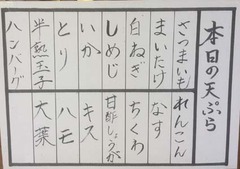 本日の天ぷら
さつまいも
まいたけ
白ねぎ
しめじ
いか
とり
半熟玉子
ハンバーグ
れんこん
なす
ちくわ
甘酢しょうが
キス
ハモ
大葉